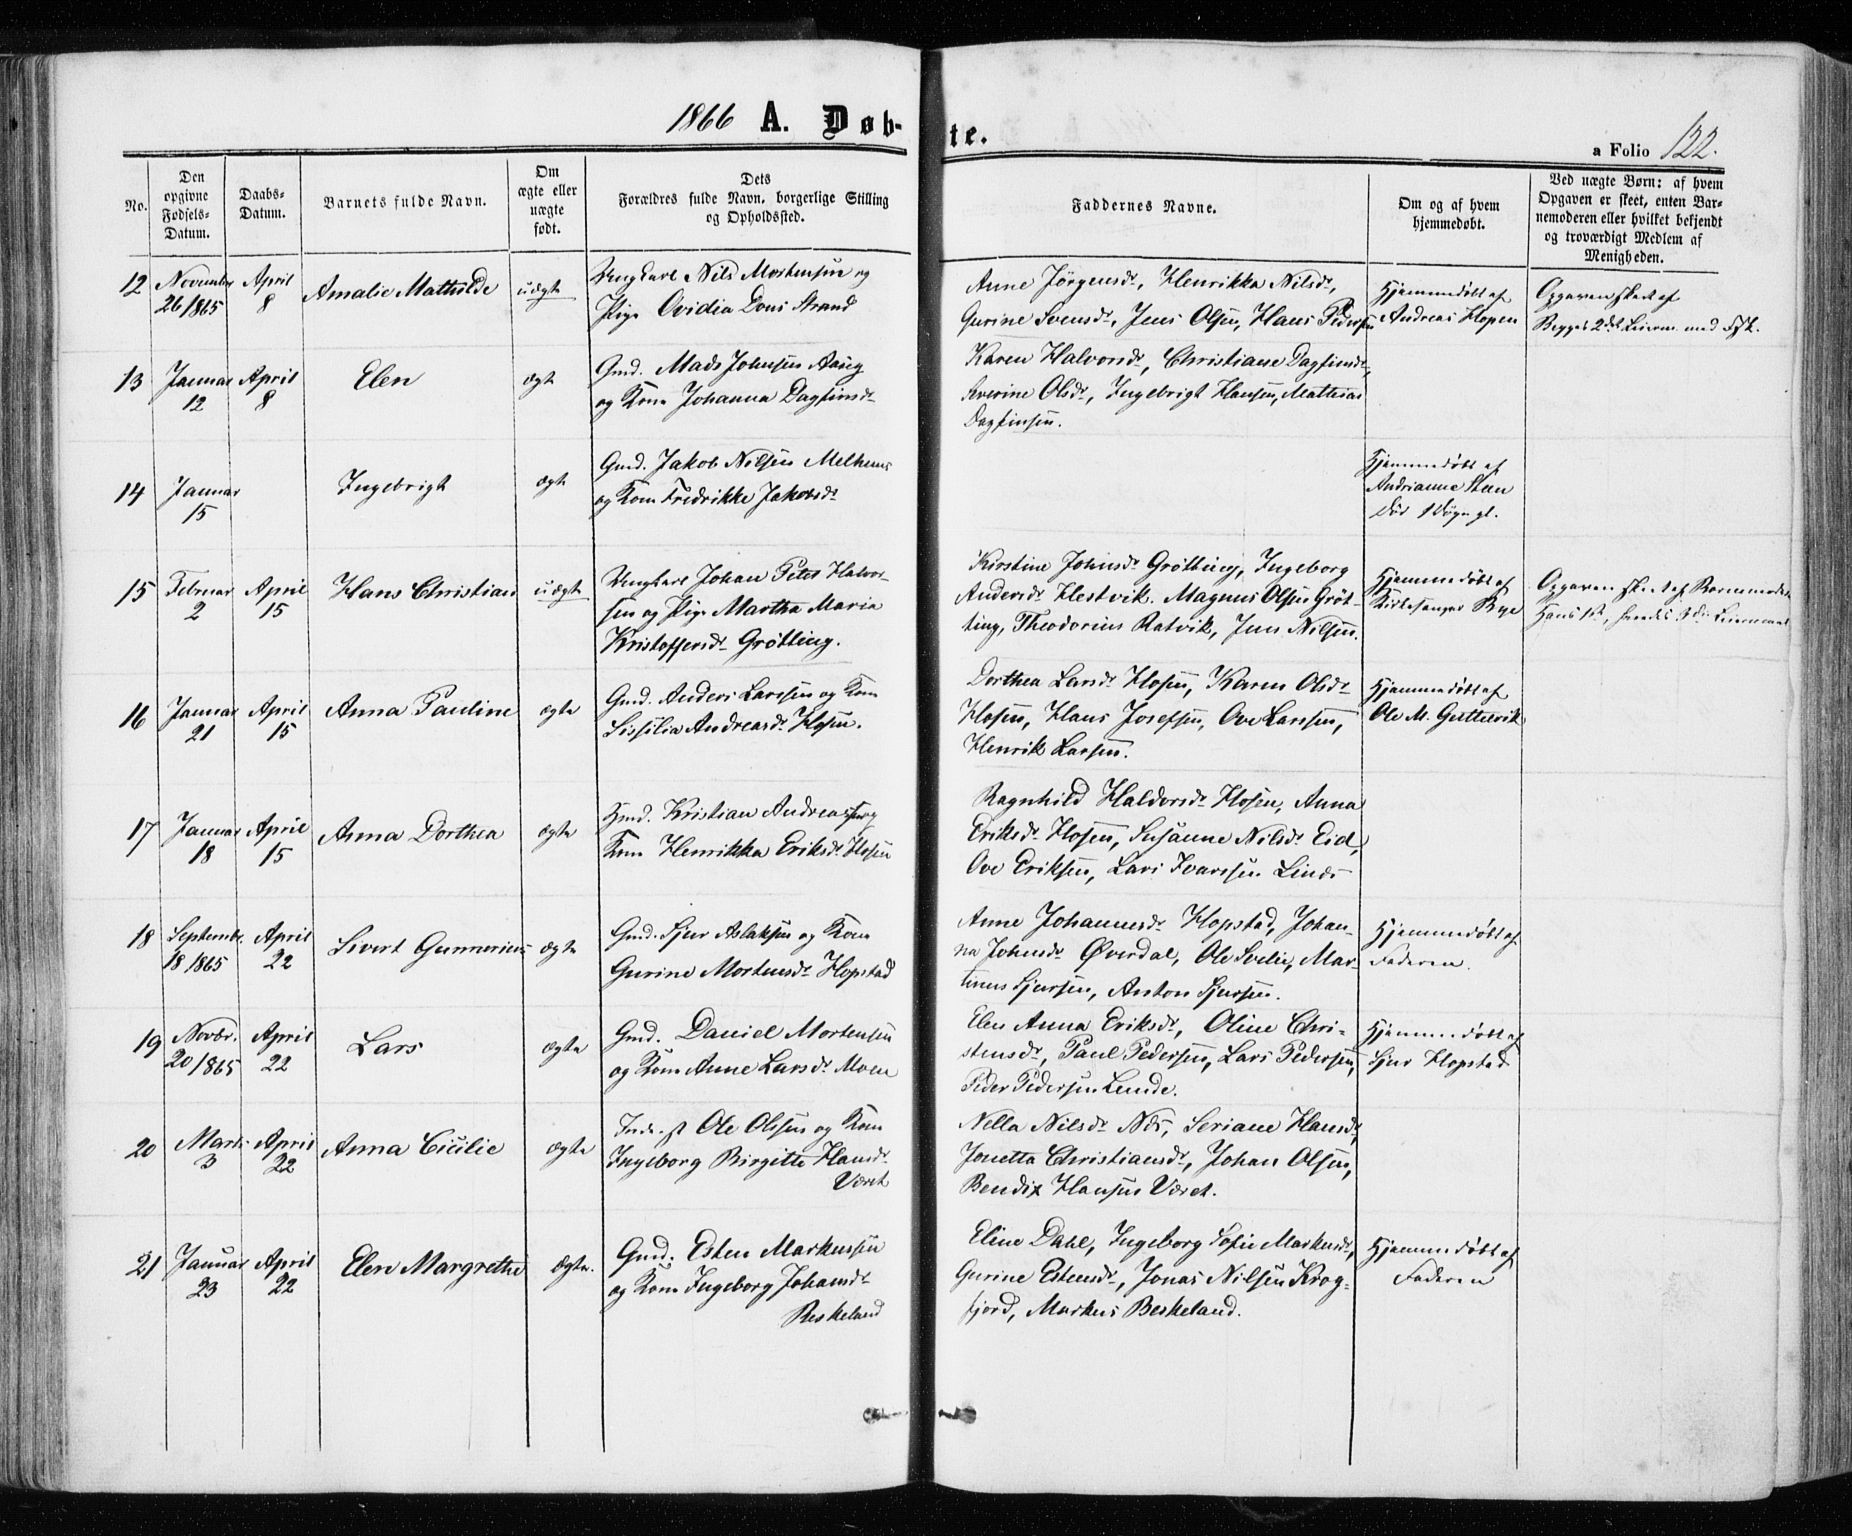 1866 A. Døb-
te.
a Folio 122.
No.
Den
opgivne
Fødsels-
Datum.
Daabs-
Datum.
Barnets fulde Navn.
Om
ægte eller
uægte
født.
Dets
Forældres fulde Navn, borgerlige Stilling
og Opholdssted.
Faddernes Navne.
Om og af hvem
hjemmedøbt.
Ved uægte Børn: af hvem
Opgaven er skeet, enten Bar-
nemoderen eller hvilket bekjendt
og troværdigt Medlem af
Menigheden.
12
November
26 1865
April
8
Amalie Mathilde
uægte
Ungkarl Nils Mortensen og
Pige Ovidia Strand
Anne Jörgensdr, Henrikka Nilsdr,
Gurine Svensdr, Jens Olsen, Hans Pedersen
Hjemmedøbt af
Andreas Hopen
Opgaven skeet af
Begges 2det Leierm. med
13
Januar
12
April
8
Elen
ægte
Gmd. Mads Johnsen
og Kone Johanna Dagfinsdr
Karen Halvorsdr, Christiane Dagfinsdr,
Severine Olsdr, Ingebrigt Hansen, Mathias
Dagfinsen.
14
Januar
15
Ingebrigt
ægte
Gmd. Jakob Nilsen Melhuus
og Kone Fredrikke Jakobsdr
Hjemmedöbt af
Andrianne Steen
Död 1 Døgn gl.
15
Februar
2
April
15
Hans Christian
uægte
Ungkarl Johan Peter Halvor-
sen og Pige Martha Maria
Kristoffersdr Grötting.
Kirstine Johnsdr Grötting, Ingeborg
Andersdr Hestvik. Magnus Olsen Gröt-
ting, Theodorius Ratvik, Jens Nilsen.
Hjemmedöbt af
Kirkesanger Rye
Opgaven skeet af Barnemoder
Hans 1ste, hendes 3die Leiermaal
16
Januar
21
April
15
Anna Pauline
ægte
Gmd. Anders Larssen og Kone
Sissilia Andreasdr Hosen.
Dorthea Larsdr Hosen, Karen Olsdr
Hosen, Hans Josefsen, Ove Larssen,
Henrik Larsen.
Hjemmedöbt af
Ole M. Guttelvik
17
Januar
18
April
15
Anna Dorthea
ægte
Hmd. Kristian Andreassen og
Kone Henrikka Eriksdr Hosen
Ragnhild Haldorsdr Hosen, Anna
Eriksdr Hosen, Susanne Nilsdr Eid,
Ove Eriksen, Lars Ivarssen Linds
18
Septembr.
18 1865
April
22
Sivert Gunnerius
ægte
Gmd. Sjur Aslaksen og Kone
Gurine Mortensdr Hopstad
Anne Johannesdr Hopstad, Johan-
na Johnsdr Øverdal, Ole Sælie, Mar-
tinus Sjursen, Anton Sjursen.
Hjemmedöbt af
Faderen.
19
Novbr.
20 1865
April
22
Lars
ægte
Gmd. Daniel Mortensen
og Kone Anne Larsdr Moen
Elen Anna Eriksdr, Oline Chri-
stensdr, Paul Pedersen, Lars Pedersen,
Peder Pedersen Lunde.
Hjemmedöbt af
Sjur Hopstad
20
Marts
3
April
22
Anna Cicilie
ægte
Inds. Ole Olssen og Kone
Ingeborg Birgitte Hansdr
Været
Nella Nilsdr Næs, Seriane Hansdr,
Jonetta Christiansdr, Johan Olsen,
Bendix Hansen Været.
21
Januar
23
April
22
Elen Margrethe
ægte.
Gmd. Esten Markussen
og Kone Ingeborg Johansdr
Beskeland
Eline Dahl, Ingeborg Sofie Markusdr,
Gurine Estensdr, Jonas Nilsen Krog-
fjord, Markus Beskeland.
Hjemmedöbt af
Faderen